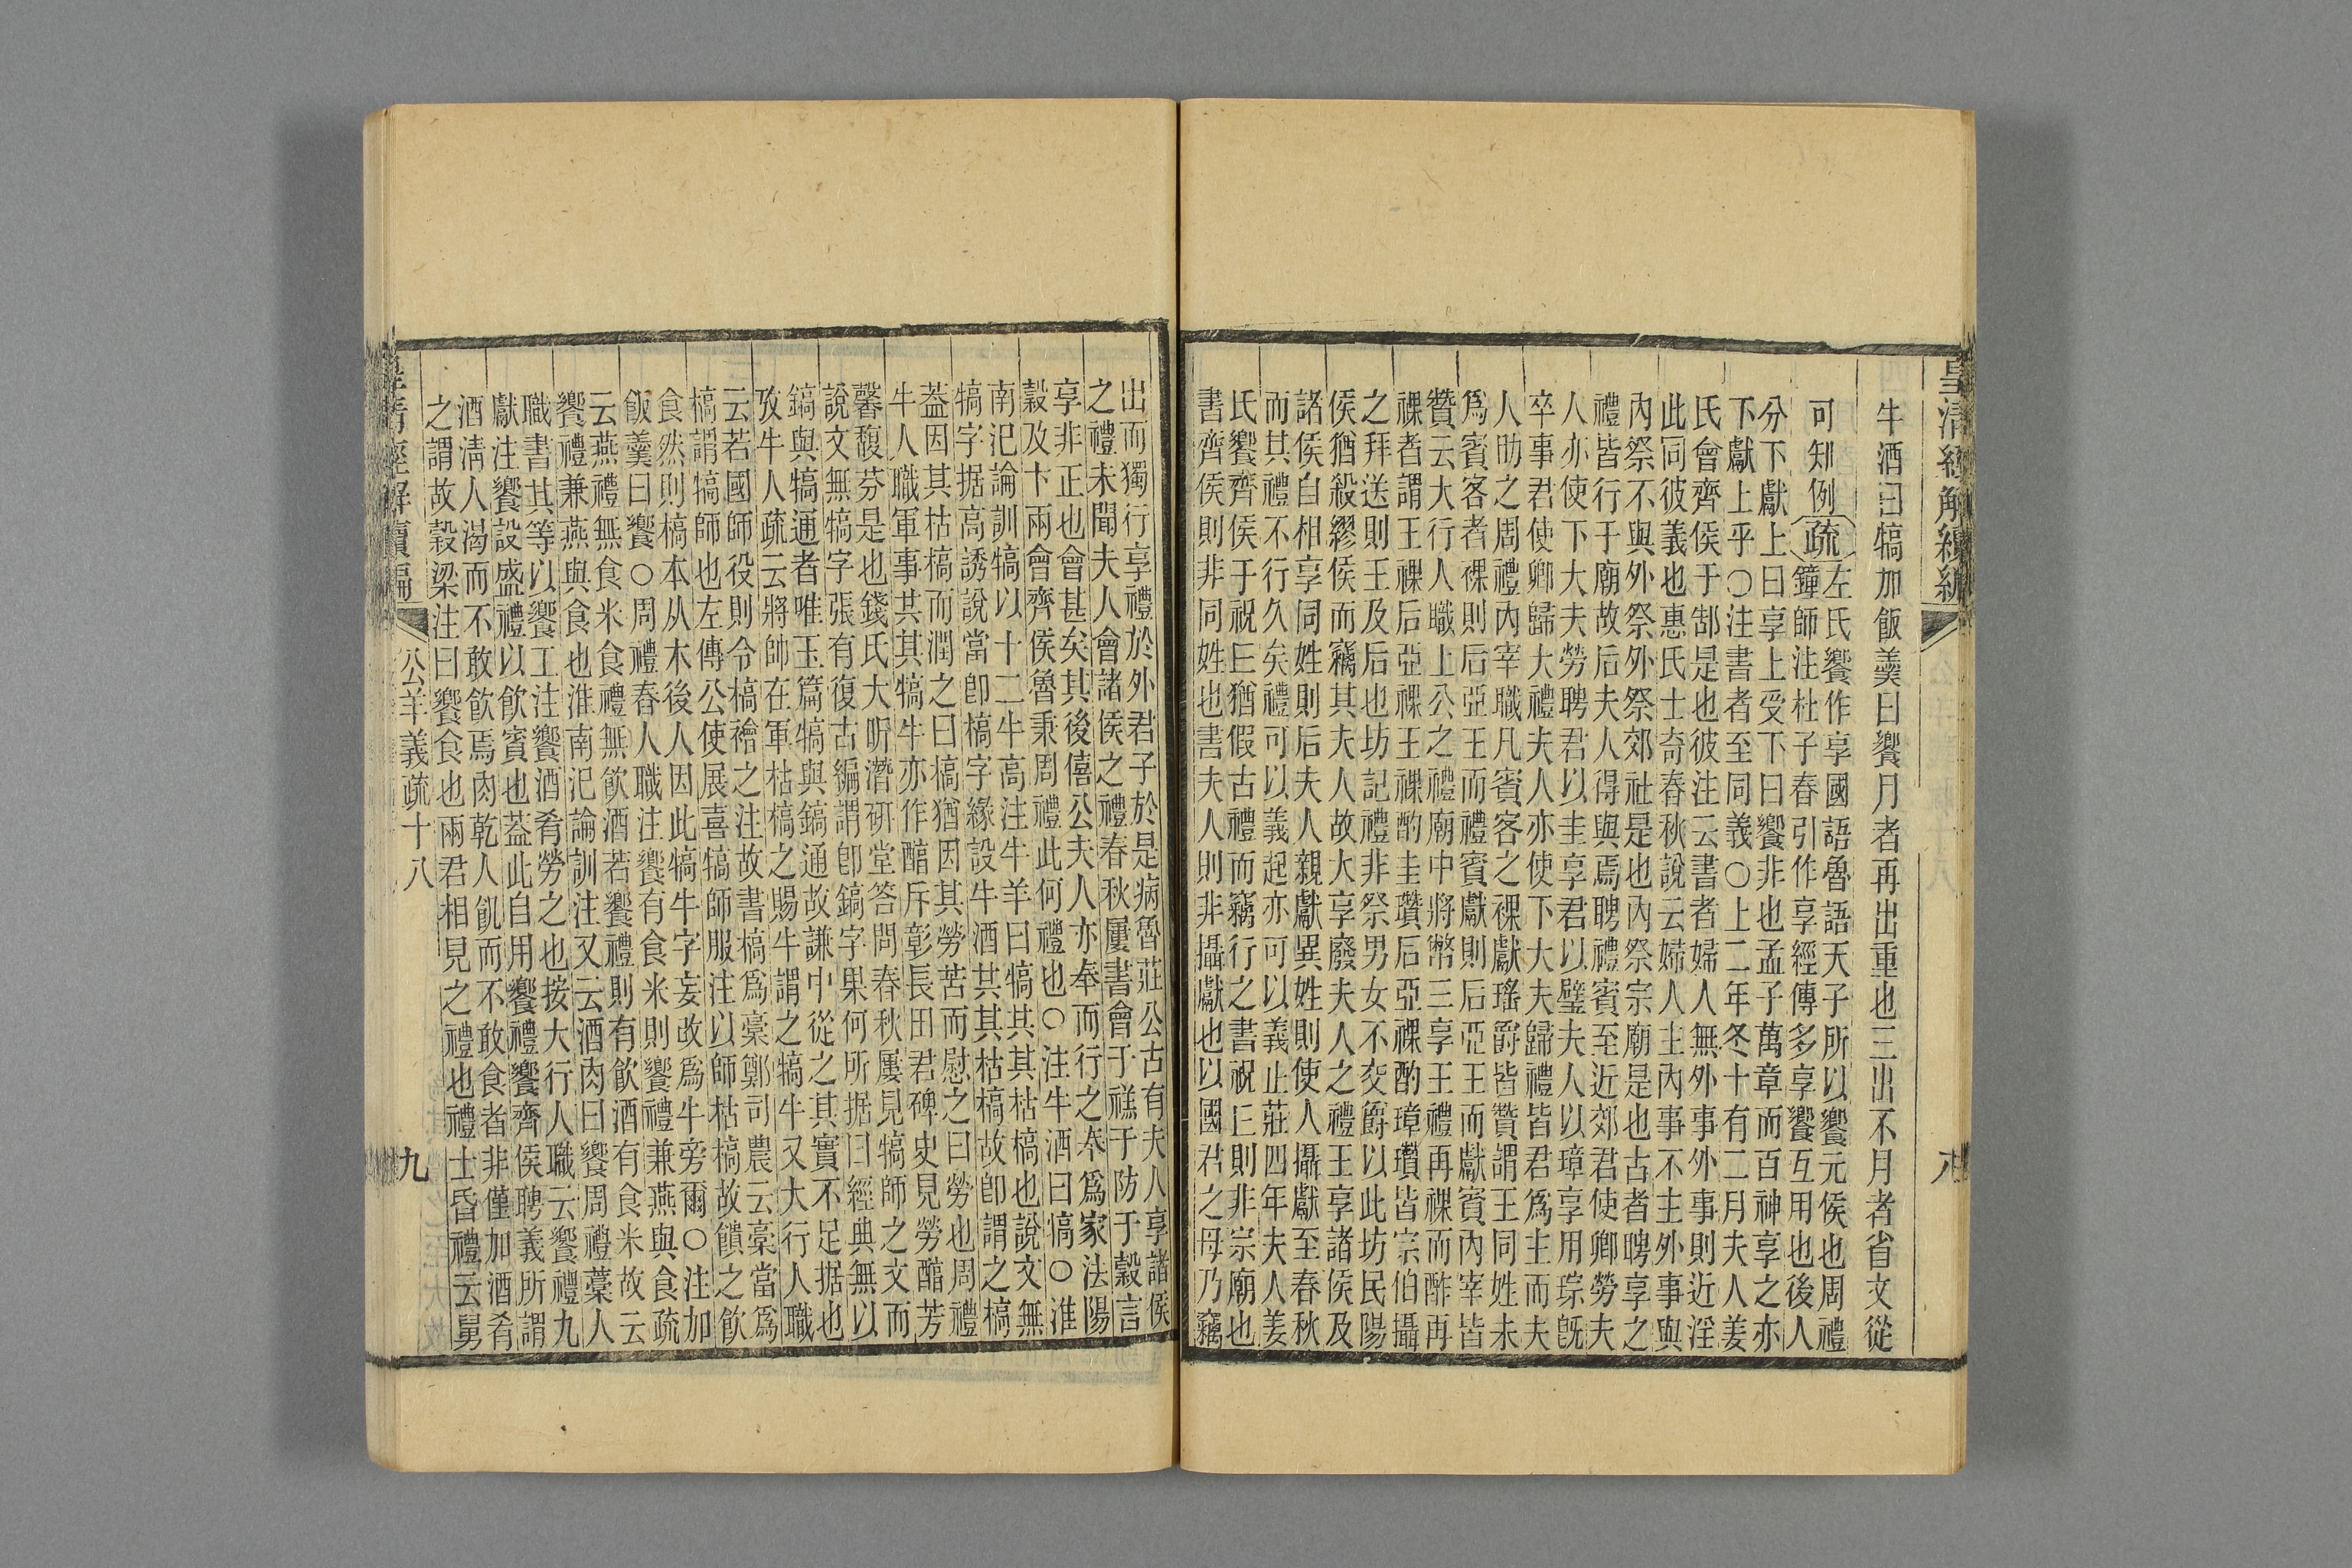 皇清經解續編
牛酒曰犒加飯羹曰饗月者再出重也三出不月者省文從
可知例疏左氏饗作享國語魯語天子所以饗元侯也周禮
鐘師注杜子春引作享經傳多享饗互用也後人
分下獻上曰享上受下曰饗非也孟子萬章而百神享之亦
下獻上乎○注書者至同義○上二年冬十有二月夫人姜
氏會齊侯于郜是也彼注云書者婦人無外事外事則近淫
此同彼義也惠氏士奇春秋說云婦人主內事不主外事與
內祭不與外祭外祭郊社是也內祭宗廟是也古者聘享之
禮皆行于廟故后夫人得與焉聘禮賓至近郊君使卿勞夫
人亦使下大夫勞聘君以圭享君以璧夫人以璋享用琮旣
卒事君使卿歸大禮夫人亦使下大夫歸禮皆君爲主而夫
人助之周禮內宰職凡賓客之祼獻瑤爵皆贊謂王同姓未
爲賓客者祼則后亞王而禮賓獻則后亞王而獻賓內宰皆
贊云大行人職上公之禮廟中將幣三享王禮再祼而酢再
祼者謂王祼后亞祼王祼酌圭瓚后亞祼酌璋瓚皆宗伯攝
之拜送則王及后也坊記禮非祭男女不交爵以此坊民陽
侯猶殺繆侯而竊其夫人故大享廢夫人之禮王享諸侯及
諸侯自相享同姓則后夫人親獻異姓則使人攝獻至春秋
而其禮不行久矣禮可以義起亦可以義止莊四年夫人姜
氏饗齊侯于祝丘猶假古禮而竊行之書祝丘則非宗廟也
書齊侯則非同姓也書夫人則非攝獻也以國君之母乃竊
八
出而獨行享禮於外君子於是病魯莊公古有夫人享諸侯
之禮未聞夫人會諸侯之禮春秋屢書會于禚于防于穀言
享非正也會甚矣其後僖公夫人亦奉而行之奉爲家法陽
穀及卞兩會齊侯魯秉周禮此何禮也○注牛酒曰犒○淮
南氾論訓犒以十二牛高注牛羊曰犒共其枯槁也說文無
犒字据高誘說當卽槁字緣設牛酒共其枯槁故卽謂之槁
蓋因其枯槁而潤之曰槁猶因其勞苦而慰之曰勞也周禮
牛人職軍事共其犒牛亦作䤗斥彰長田君碑史見勞䤗芳
馨馥芬是也錢氏大昕潛硏堂答問春秋屢見犒師之文而
說文無犒字張有復古編謂卽鎬字果何所据曰經典無以
鎬與犒通者唯玉篇犒與鎬通故謙中從之其實不足据也
攷牛人疏云將帥在軍枯槁之賜牛謂之犒牛又大行人職
云若國師役則令槁禬之注故書槁爲稾鄭司農云稾當爲
槁謂犒師也左傳公使展喜犒師服注以師枯槁故饋之飮
食然則槁本从木後人因此犒牛字妄改爲牛旁爾○注加
飯羹曰饗○周禮春人職注饗有食米則饗禮兼燕與食疏
云燕禮無食米食禮無飮酒若饗禮則有飮酒有食米故云
饗禮兼燕與食也淮南氾論訓注又云酒肉曰饗周禮藁人
職書其等以饗工注饗酒肴勞之也按大行人職云饗禮九
獻注饗設盛禮以飮賓也蓋此自用饗禮饗齊侯聘義所謂
酒淸人渴而不敢飮焉肉乾人飢而不敢食者非僅加酒肴
之謂故穀梁注曰饗食也兩君相見之禮也禮士昏禮云舅
皇清經解續編
公羊義疏十八
九